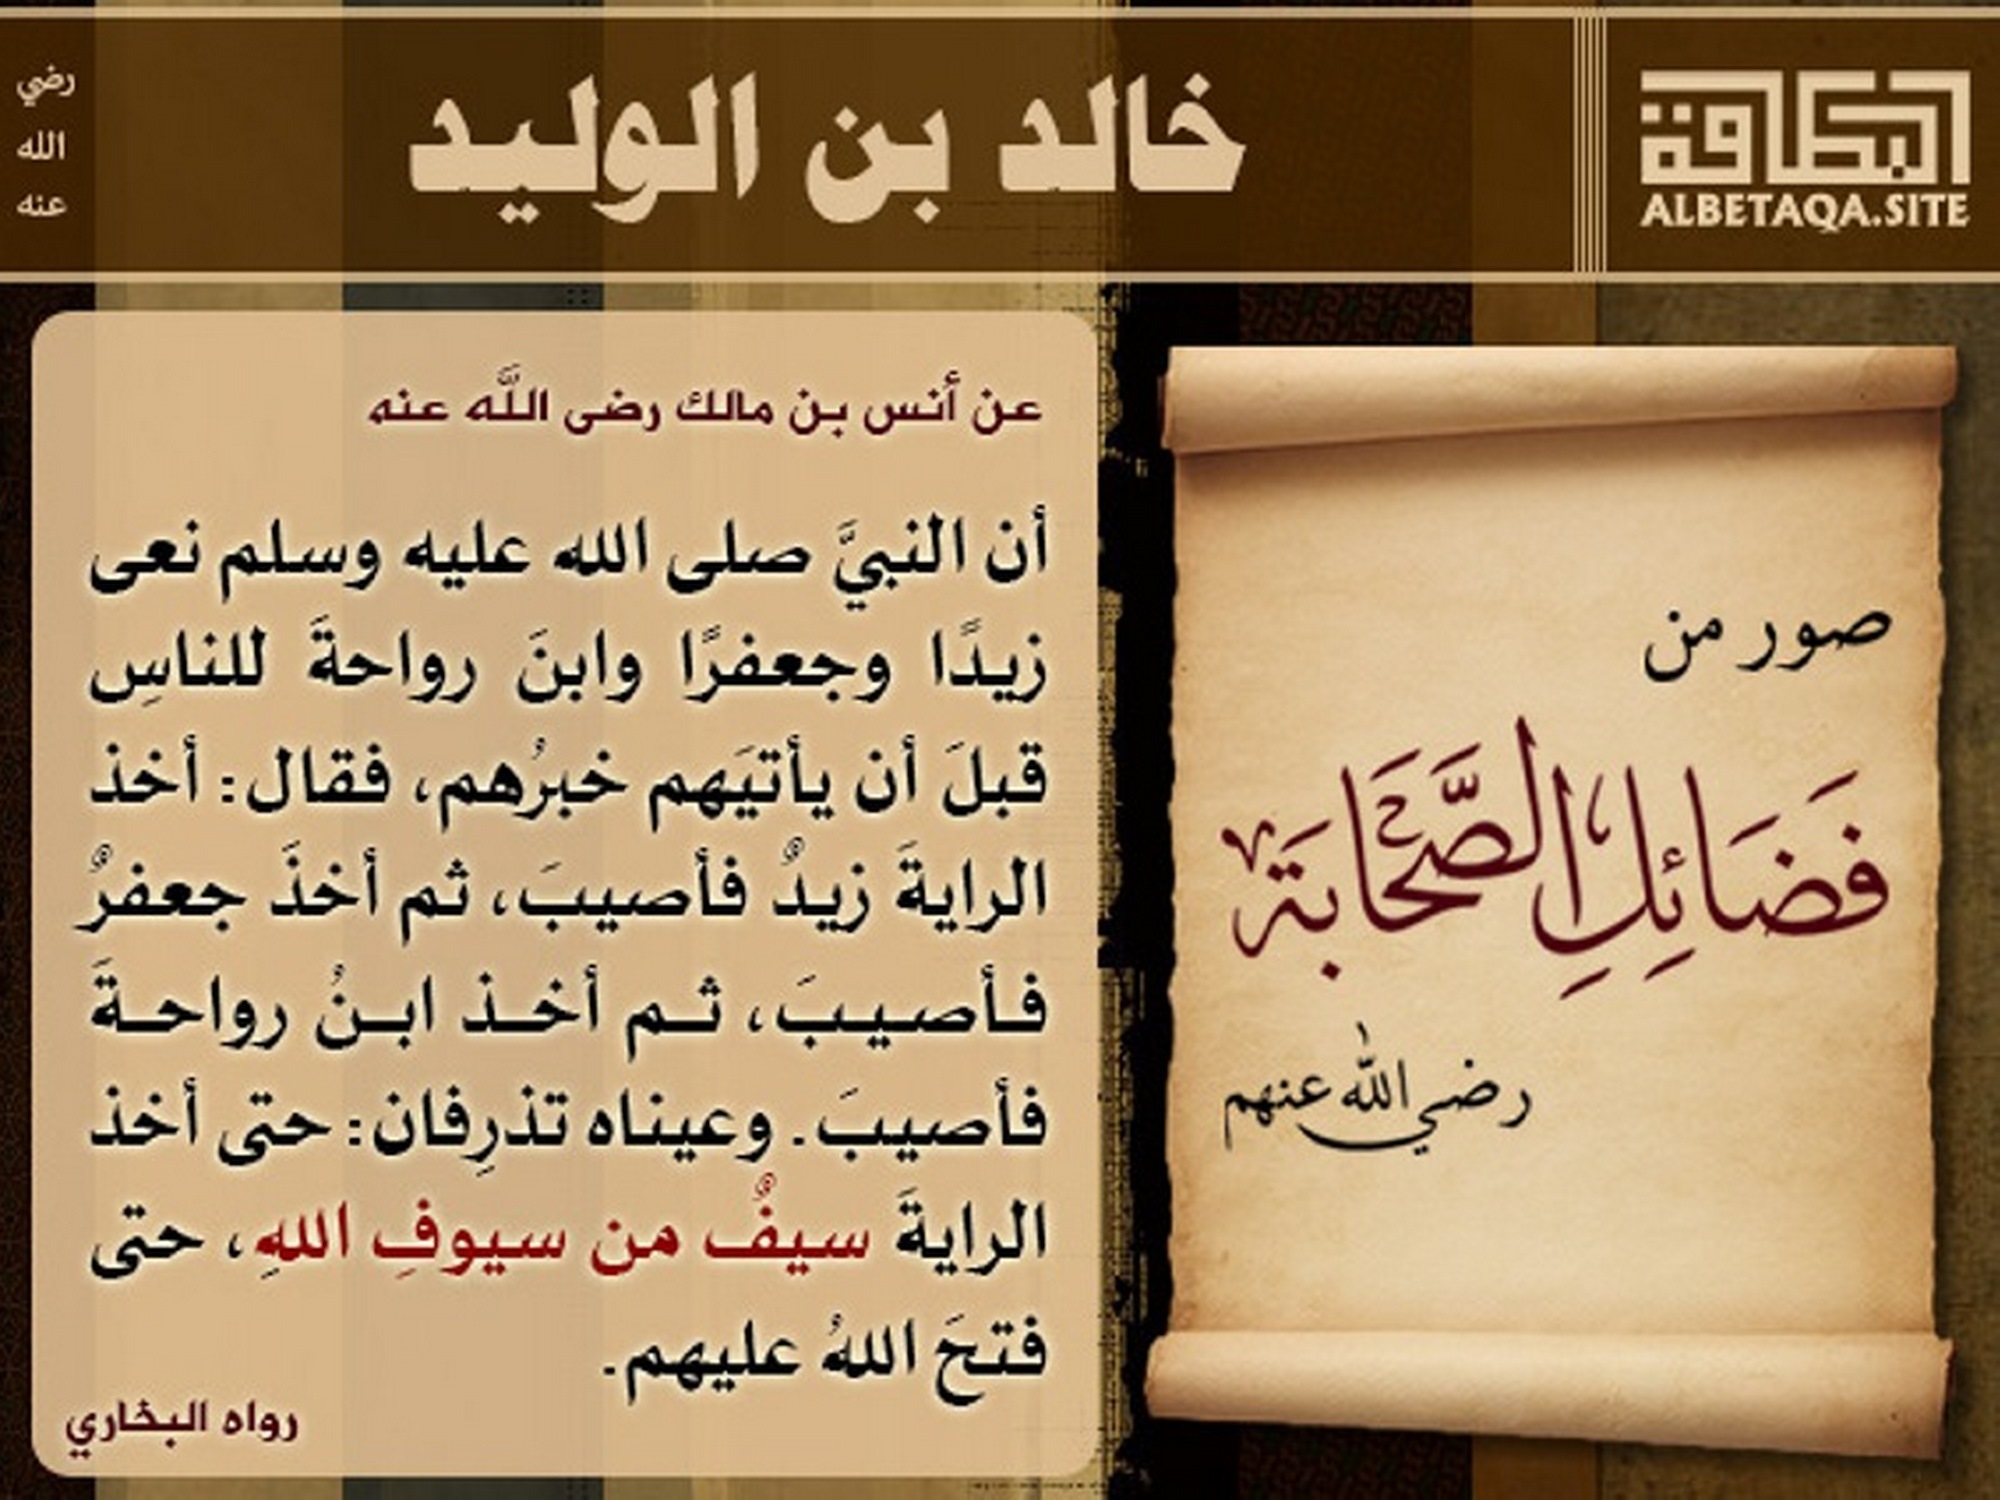 البطاقة
ALBETAQA.SITE
خالد بن الوليد
رضي
الله
عنه
صور من
فَضَائِلِ الصَّحَابَةِ
رضي الله عنهم
عن أنس بن مالك رضى اللَّه عنه
أن النبيَّ صلى الله عليه وسلم نعى
زيدًا وجعفرًا وابنَ رواحةَ للناسِ
قبلَ أن يأتيَهم خبرُهم، فقال: أخذ
الرايةَ زيدٌ فأصيبَ، ثم أخذَ جعفرٌ
فأصيبَ، ثم أخذ ابنُ رواحةَ
فأصيبَ. وعيناه تذرِفان: حتى أخذ
الرايةَ سيفٌ من سيوفِ اللهِ، حتى
فتحَ اللهُ عليهم.
رواه البخاري